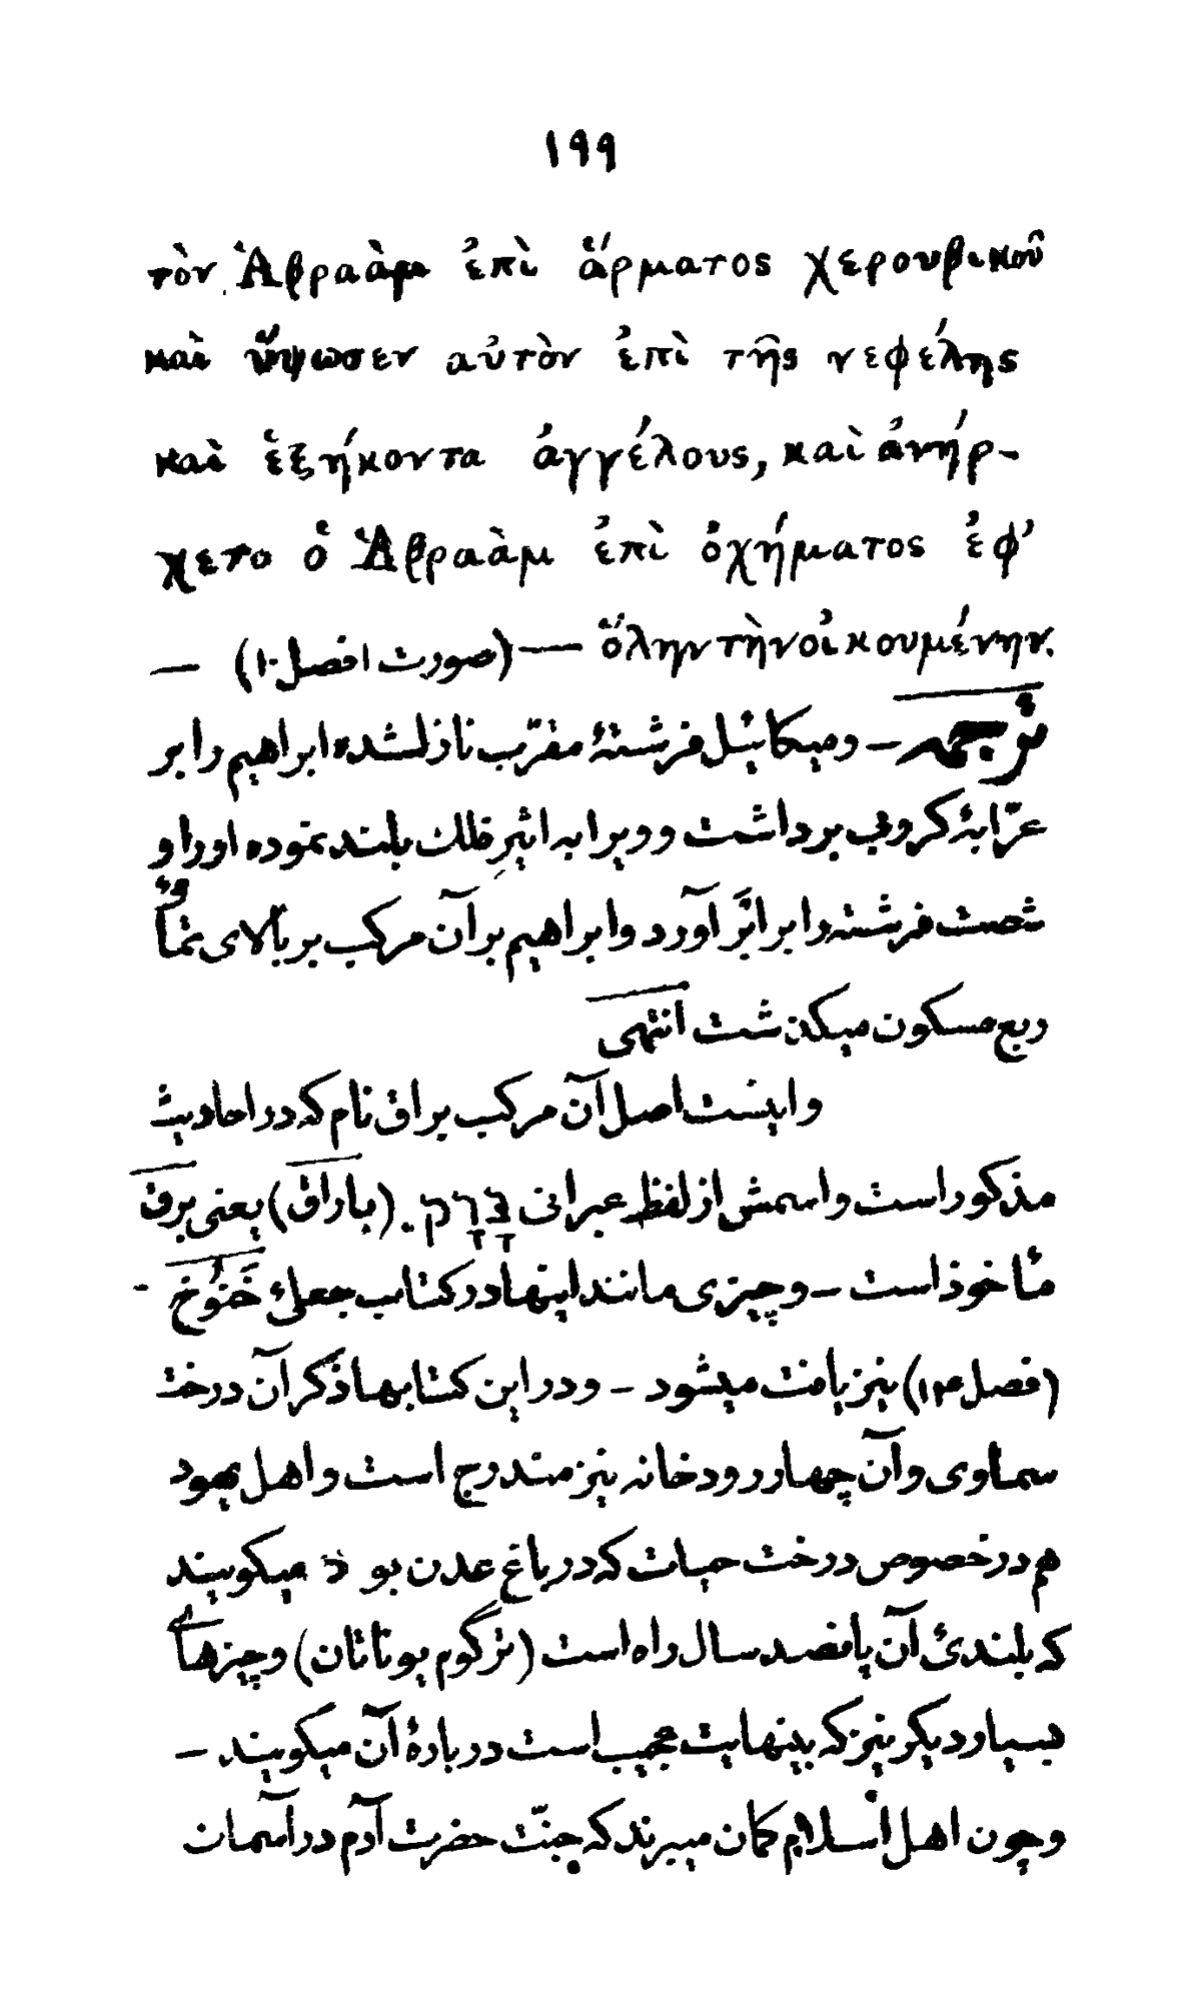 ۱۹۹
τὸν Ἀβραὰμ ἐπὶ ἅρματος χερουβικοῦ
καὶ ὕψωσεν αὐτὸν ἐπὶ τῆς νεφέλης
καὶ ἑξήκοντα ἀγγέλους, καὶ ἀνήρ-
χετο ὁ Ἀβραὰμ ἐπὶ ὀχήματος ἐφ'
ὅλην τὴν οἰκουμένην. — (صورت ا فصل ۱۰) —
ترجمه – و میکائیل فرشتهٔ مقرّب نازلشده ابراهیم را بر
عرّابهٔ کروبی برداشت و ویرا به اثیرِ فلک بلند نموده او را و
شصت فرشته را برابَر آورد و ابراهیم بر آن مرکب بر بالای تماًم
ربع مسکون میگذشت انتهی
و اینست اصل آن مرکب براق نام که در احادیث
مذکور است و اسمش از لفظ عبرانی בָּרָק. (باراق) یعنی برق
مأخوذ است – و چیزی مانند اینها در کتاب جعلئ خَنُوُخ -
(فصل ۱۴) نیز یافت میشود – و در این کتابها ذکر آن درخت
سماوی و آن چهار رودخانه نیز مندرج است و اهل یهود
هم در خصوص درخت حیات که در باغ عدن بود میگویند
که بلندئ آن پانصد سال راه است (ترگوم یوناثان) و چیزهای
بسیار دیگر نیز که بینهایت عجیب است دربارهٔ آن میگویند –
و چون اهل اسلام گمان میبرند که جنّت حضرت آدم در آسمان